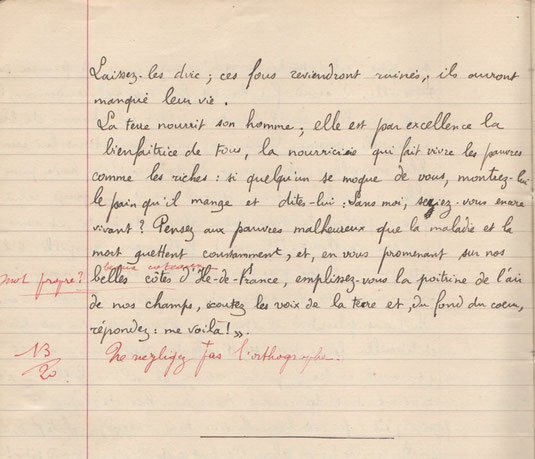 Laissez-les dire ; ces fous reviendront ruinés, ils auront
manqué leur vie.
La terre nourrit son homme ; elle est par excellence la
bienfaitrice de tous, la nourricière qui fait vivre les pauvres
comme les riches : si quelqu'un se moque de vous, montrez-lui
le pain qu'il mange et dites-lui : Sans moi, seriez-vous encore
vivant ? Pensez aux pauvres malheureux que la maladie et la
mort guettent constamment, et, en vous promenant sur nos
beaux coteaux
mot propre ? belles côtes d'Ile-de-France, emplissez-vous la poitrine de l'air
de nos champs, écoutez les voix de la terre et, du fond du coeur,
répondez : me voilà ! ».
13/20 Ne négligez pas l'orthographe.